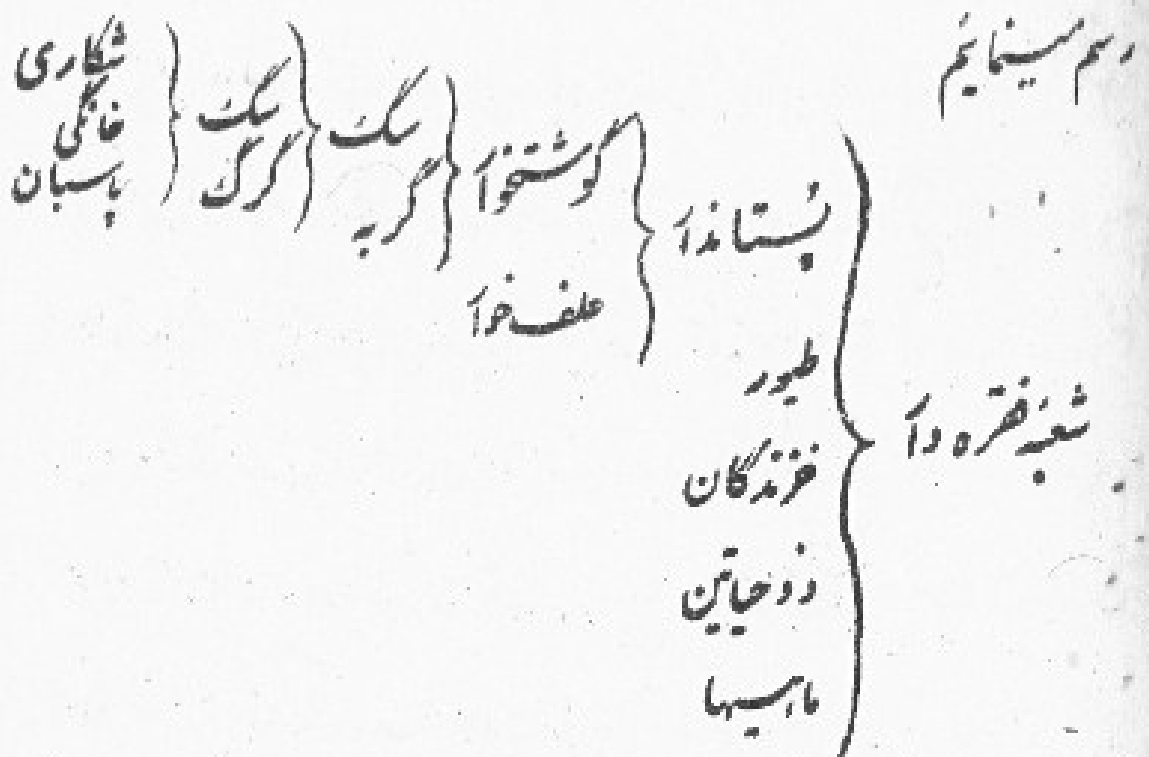 رسم مینمائیم
شعبه فقره دار
پستاندار
طیور
خزندگان
ذوحیاتین
ماهیها
گوشتخوار
علف خوار
سگ
گربه
سگ
گرگ
شکاری
خانگی
پاسبان